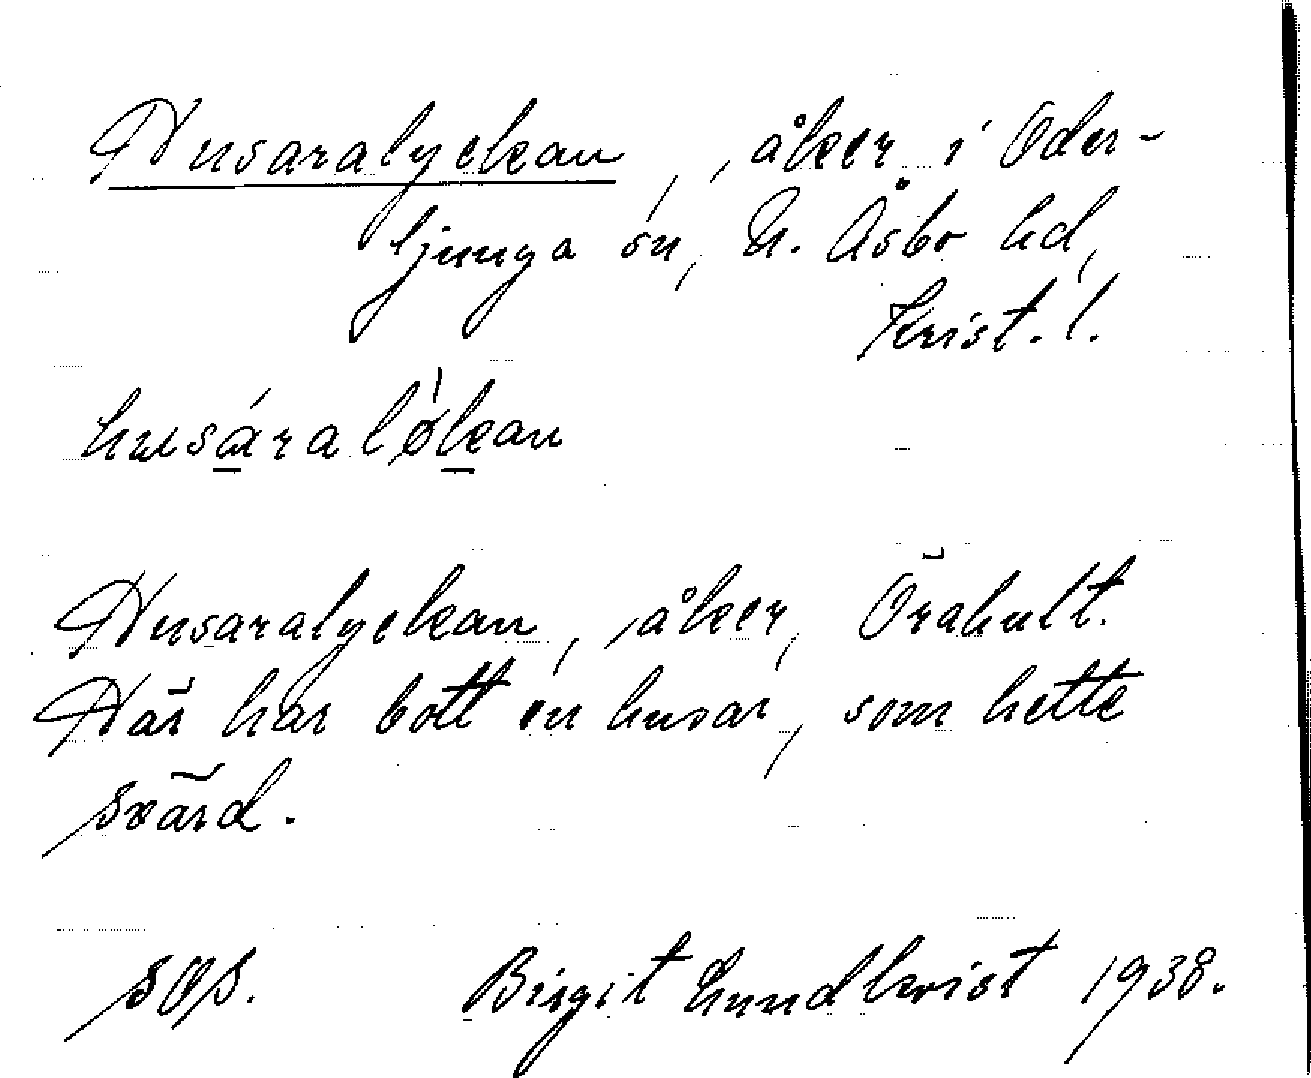 Husaralyckan, åker i Oder-
ljunga sn, N. Åsbo hd,
Krist. l.
husáralỳkan
Husaralyckan, åker, Örahult.
Här har bott en husar, som hette
Svärd.
SOS. Birgit Lundkvist 1938.